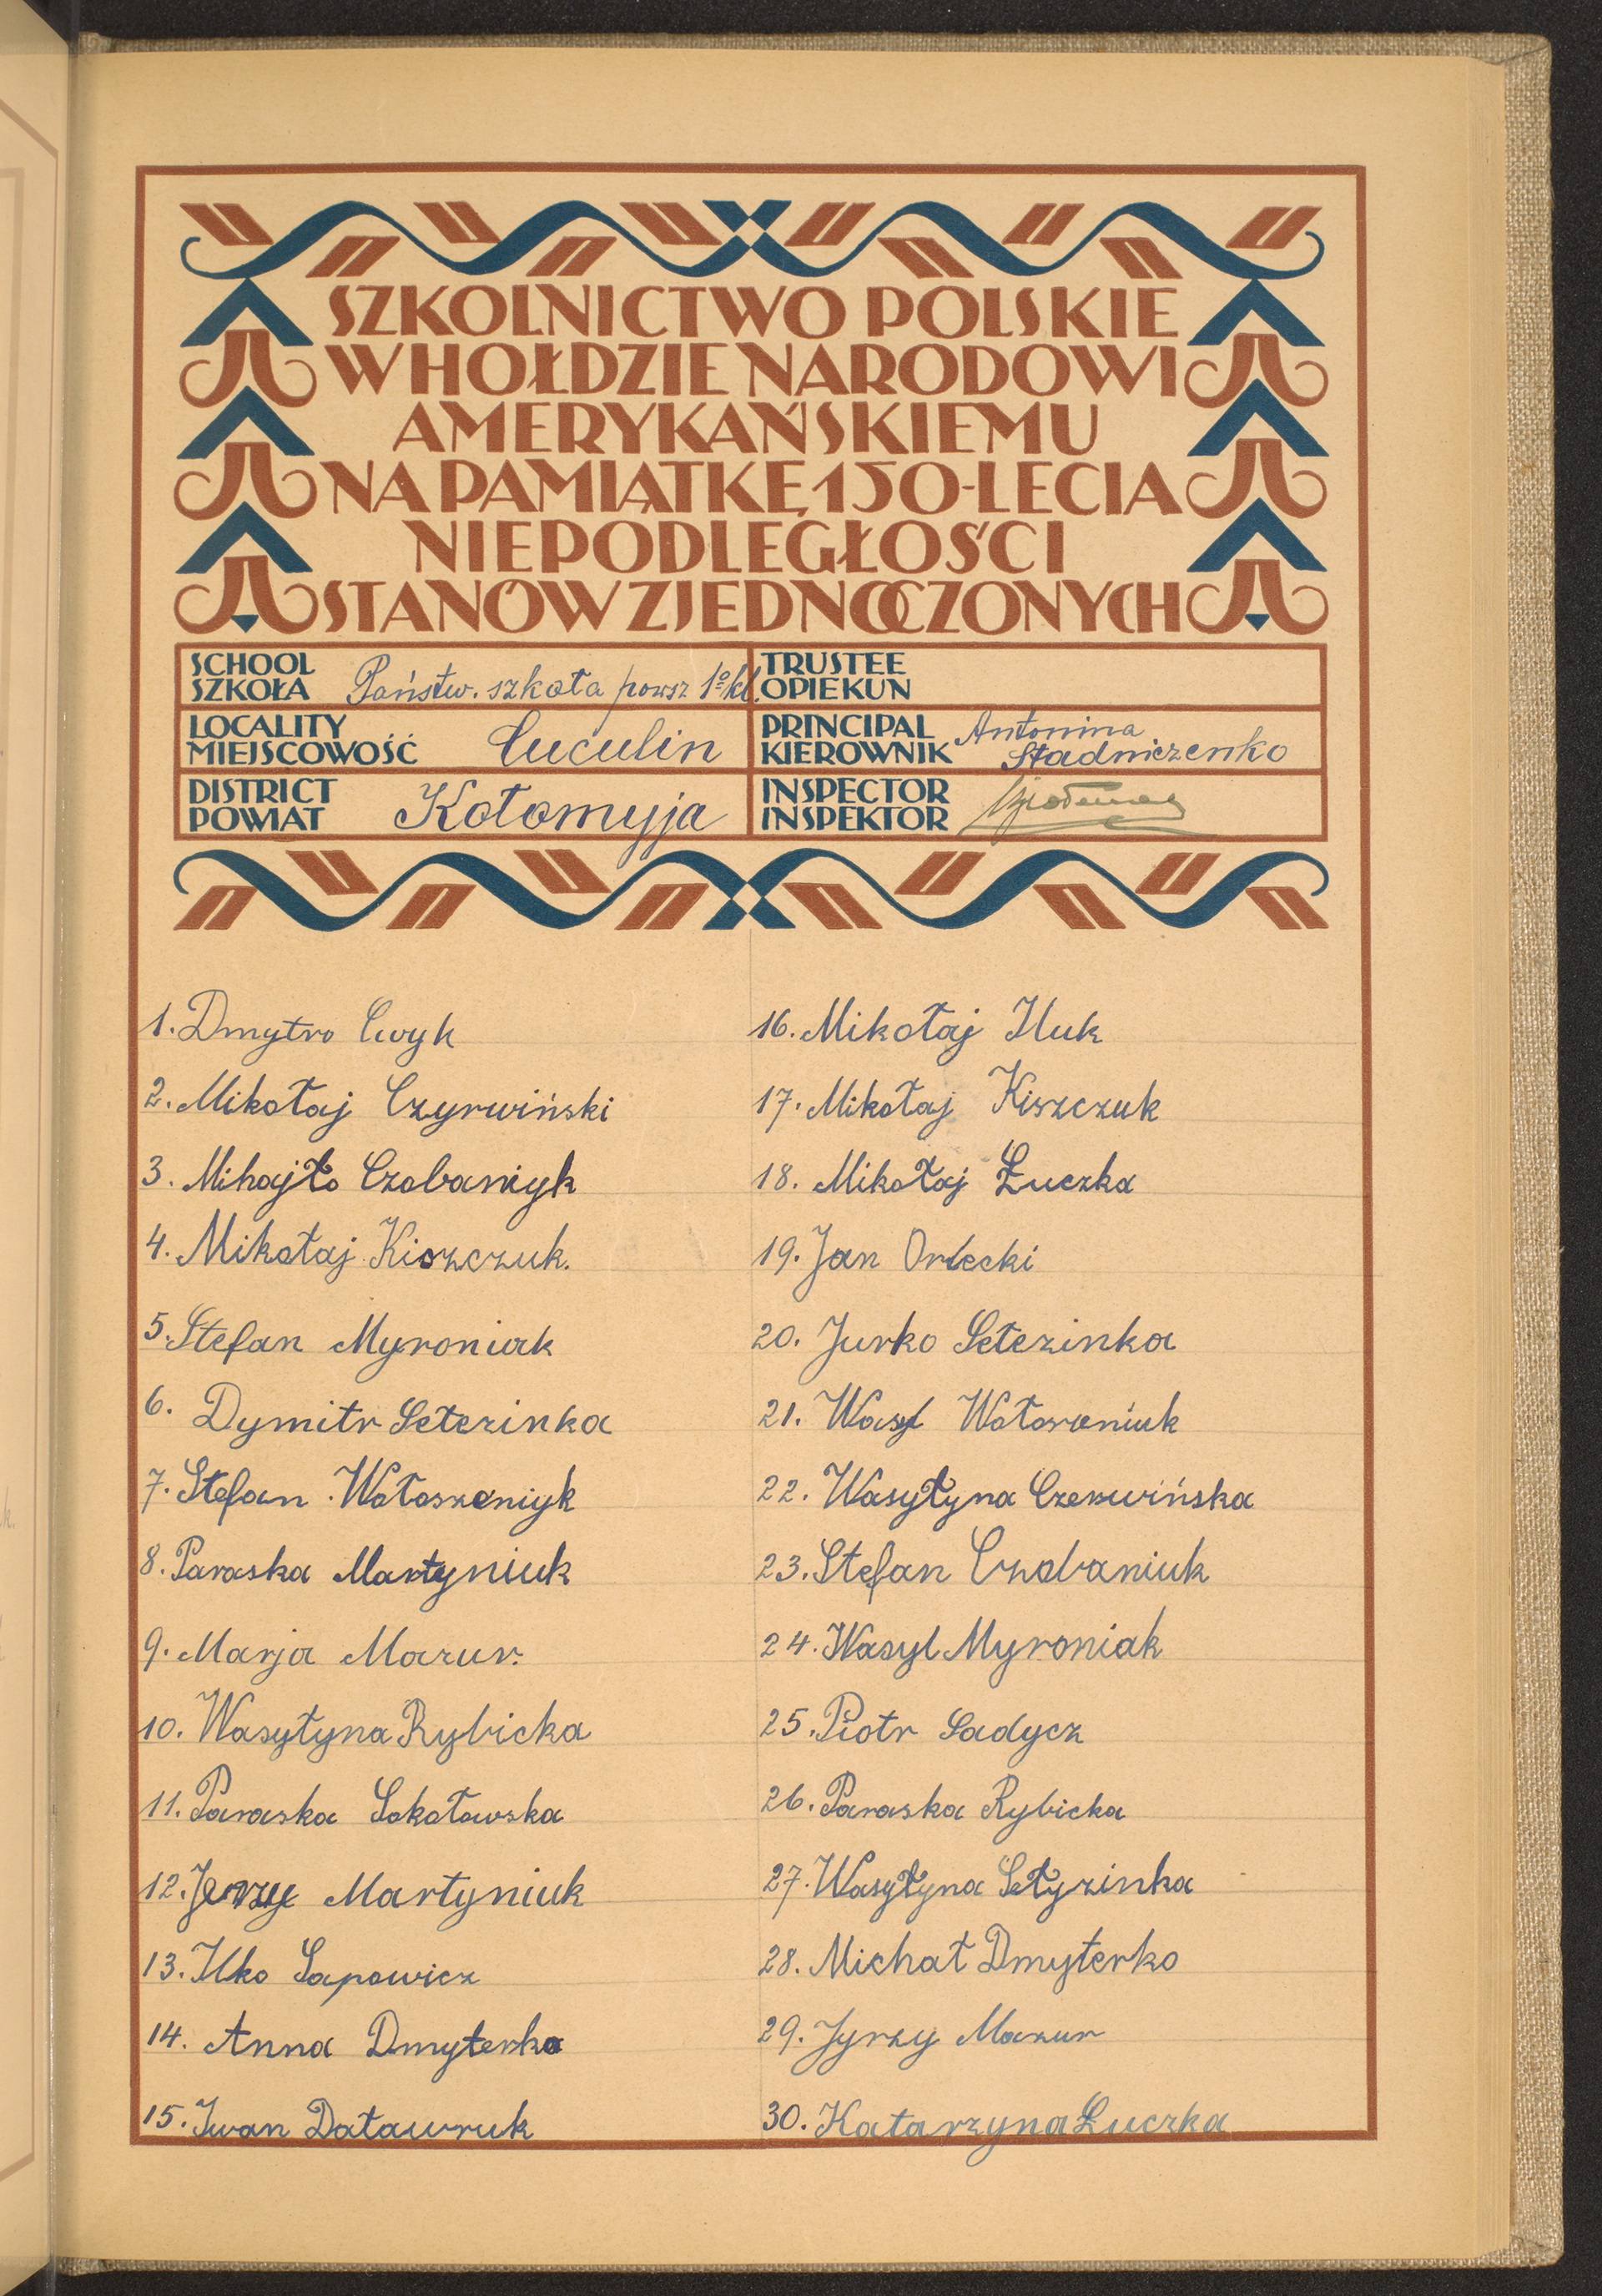 SZKOLNICTWO POLSKIE
W HOŁDZIE NARODOWI
AMERYKAŃSKIEMU
NA PAMIĄTKĘ 150-LECIA
NIEPODLEGŁOŚCI
STANÓW ZJEDNOCZONYCH
SCHOOL
SZKOŁA Państw. szkoła powsz 1º kl.
TRUSTEE
OPIEKUN
LOCALITY
MIEJSCOWOŚĆ Cuculin
PRINCIPAL Antonina
KIEROWNIK Stadniczenko
DISTRICT
POWIAT Kołomyja
INSPECTOR
INSPEKTOR
1. Dmytro Cwyk
2. Mikołaj Czyrwiński
3. Mihajło Czobaniyk
4. Mikołaj Kiszczuk.
5. Stefan Myroniak
6. Dymitr Setezinka
7. Stefan Wołoszeniyk
8. Paraska Martyniuk
9. Marja Mazur.
10. Wasyłyna Rybicka
11. Paraska Sokołowska
12. Jerzy Martyniuk
13. Ilko Sapowicz
14. Anna Dmyterko
15. Iwan Datawruk
16. Mikołaj Huk
17. Mikołaj Kiszczuk
18. Mikołaj Łuczka
19. Jan Orłecki
20. Jurko Setezinka
21. Wasyl Wołoszeniuk
22. Wasyłyna Czerwińska
23. Stefan Czobaniuk
24. Wasyl Myroniak
25. Piotr Sadycz
26. Paraska Rybicka
27. Wasyłyna Setyzinka
28. Michał Dmyterko
29. Jyrzy Mazur
30. Katarzyna Łuczka